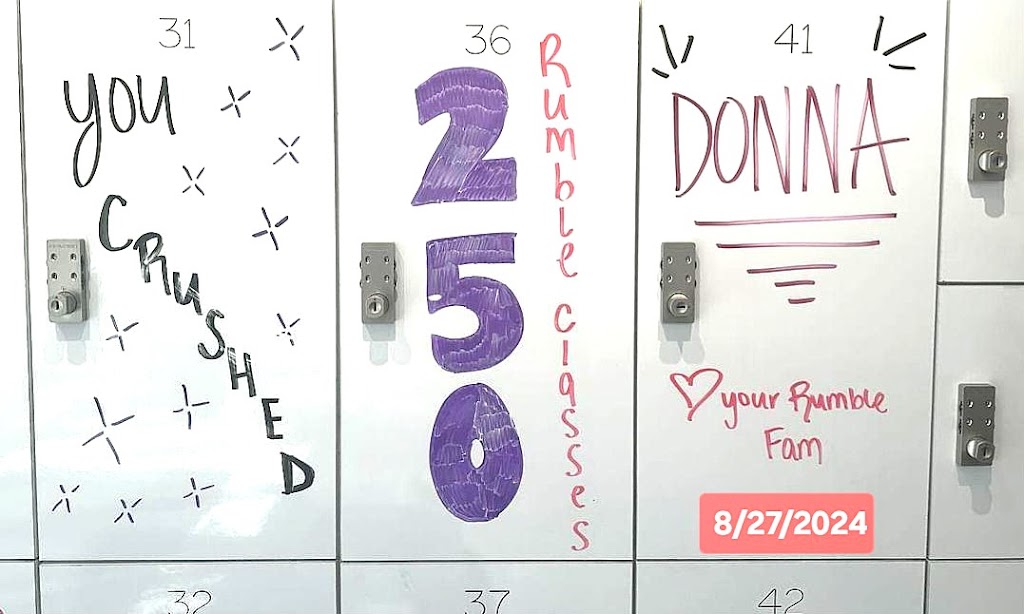 31
you
CRuSHED
36
250
Rumble classes
41
DONNA
♡ your Rumble
Fam
8/27/2024
32
37
42